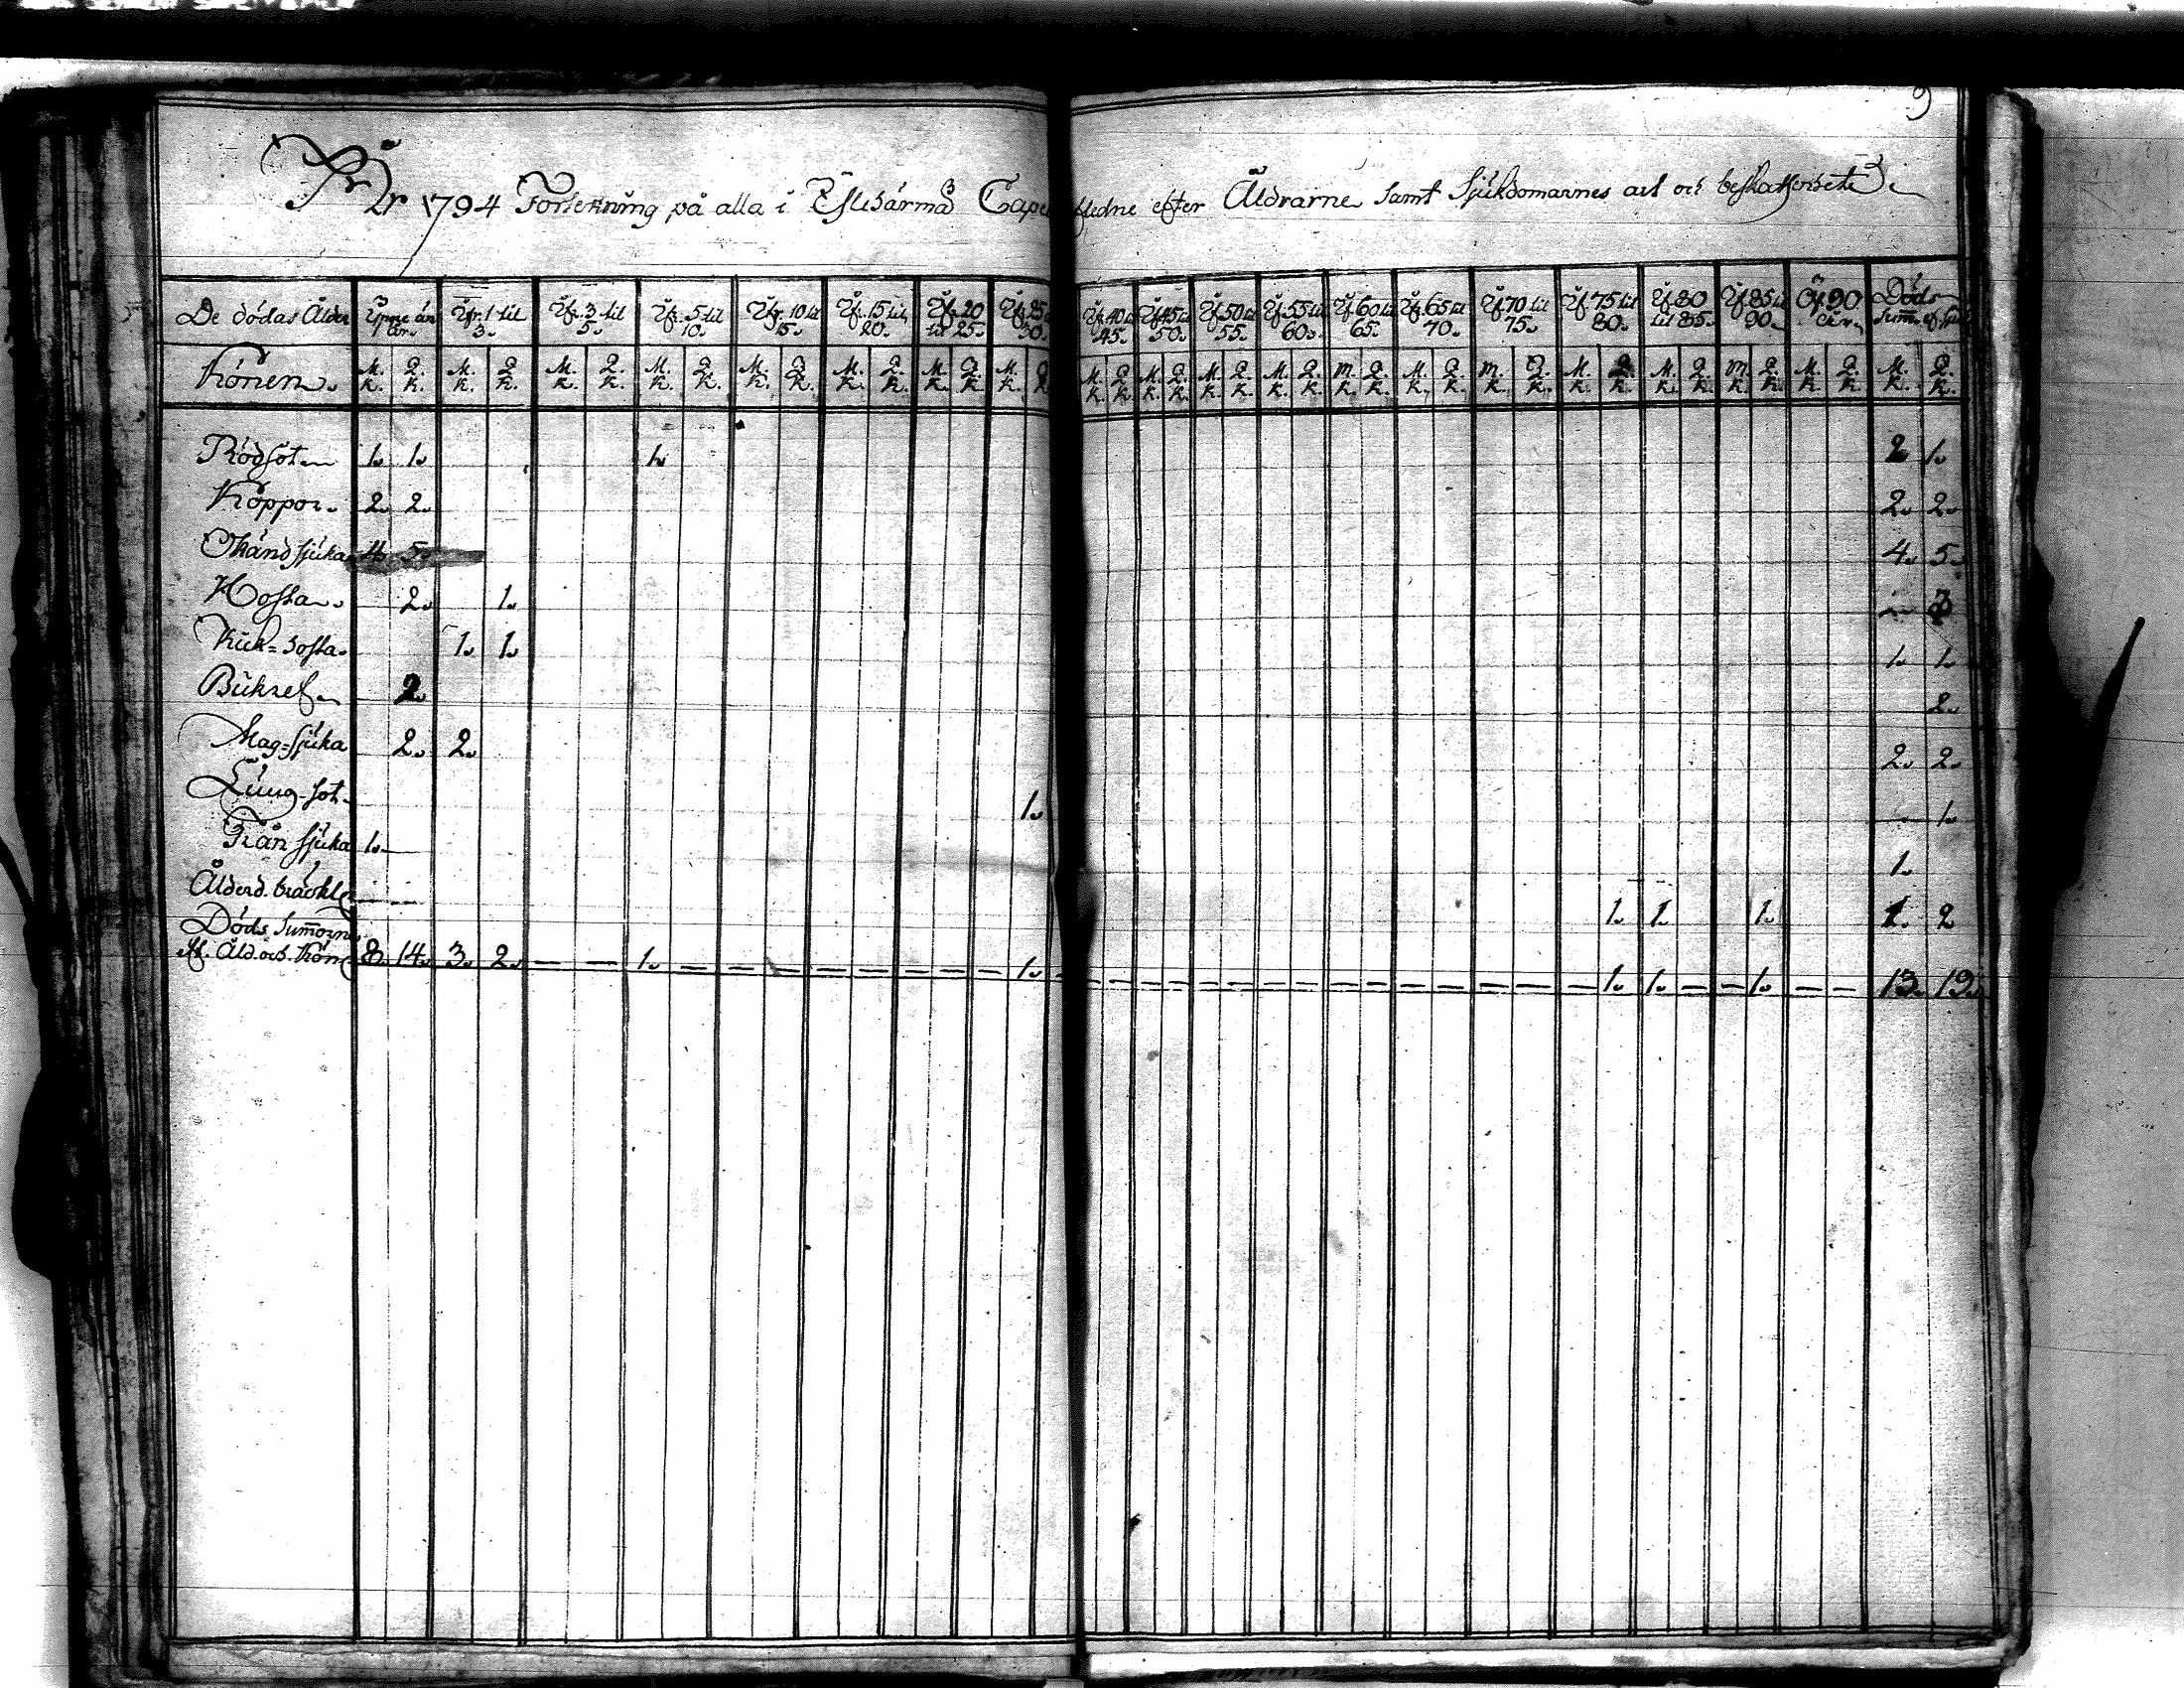 9
År 1794 Förtekning på alla i Ylihärmä Cape fledne efter Åldrarne samt Sjukdomarnes art och beskaffenhet
De dödas Ålder Af 1 til 3. Af. 3 til 5. Af. 5 til 10. Af. 10 til 15. Af. 15 til 20. Af. 20 til 25. Af. 25 30. Af. 40 til 45. Af. 45 til 50. Af. 50 til 55. Af. 55 til 60. Af. 60 til 65. Af. 65 til 70. Af. 70 til 75. Af. 75 til 80. Af. 80 til 85. Af. 85 til 90. Öf. 90 år. Döds
Könen. M. K. Q. K. M. K. Q. K. M. K. Q. K. M. K. Q. K. M. K. Q. K. M. K. Q. K. M. K. Q. K. M. K. Q. K. M. K. Q. K. M. K. Q. K. M. K. Q. K. M. K. Q. K. M. K. Q. K. M. K. Q. K. M. K. Q. K. M. K. Q. K. M. K. Q. K. M. K. Q. K. M. K. Q. K. M. K. Q. K.
Rödsot 1. 1. 1. 2. 1.
Koppor. 2. 2. 2. 2.
Okänd sjuka 4. 5. 4. 5.
Hosta. 2. 1. — 3
Kik=hosta. 1. 1. 1. 1.
Bukref 2. 2.
Mag=sjuka 2. 2. 2. 2.
Lung-sot. 1. — 1.
Trån sjuka 1. 1.
Ålderd. bräckl. — — 1. 1. 1. 1. 2
Döds Summorne
ef. Åld. och Kön 8. 14. 3. 2. — — 1. — — — — — — — — 1. — — — — — — — — — — — — — — — 1. 1. — — 1. — — 13. 19.